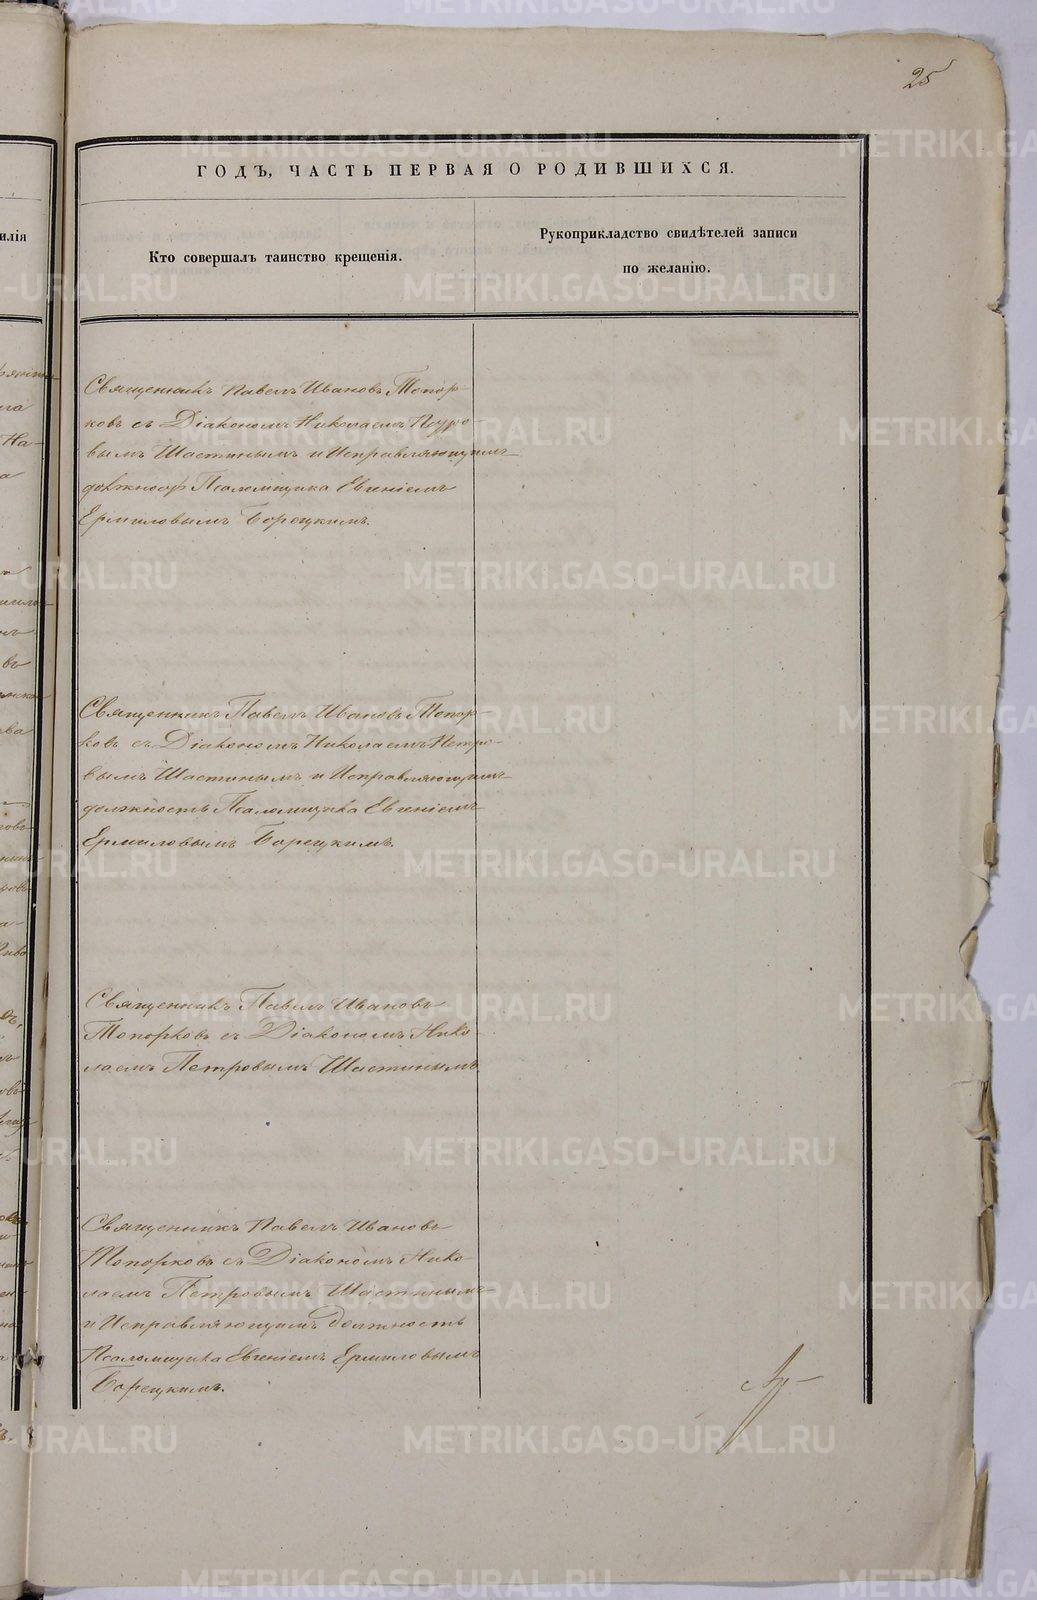 25
ГОДЪ, ЧАСТЬ ПЕРВАЯ О РОДИВШИХСЯ.
Кто совершалъ таинство крещенія.
Рукоприкладство свидѣтелей записи
по желанію.
илія
Священникъ Павелъ Ивановъ Топор-
ковъ съ Діакономъ Николаемъ Петро-
вымъ Шастинымъ и Исправляющимъ
должность Псаломщика Евгеніемъ
Ермиловымъ Борецкимъ.
Священникъ Павелъ Ивановъ Топор-
ковъ съ Діакономъ Николаемъ Петро-
вымъ Шастинымъ и Исправляющимъ
должность Псаломщика Евгеніемъ
Ермиловымъ Борецкимъ.
Священникъ Павелъ Ивановъ
Топорковъ съ Діакономъ Нико-
лаемъ Петровымъ Шастинымъ
Священникъ Павелъ Ивановъ
Топорковъ съ Діакономъ Нико-
лаемъ Петровымъ Шастинымъ
и Исправляющимъ Должность
Псаломщика Евгеніемъ Ермиловымъ
Борецкимъ.
METRIKI.GASO-URAL.RU